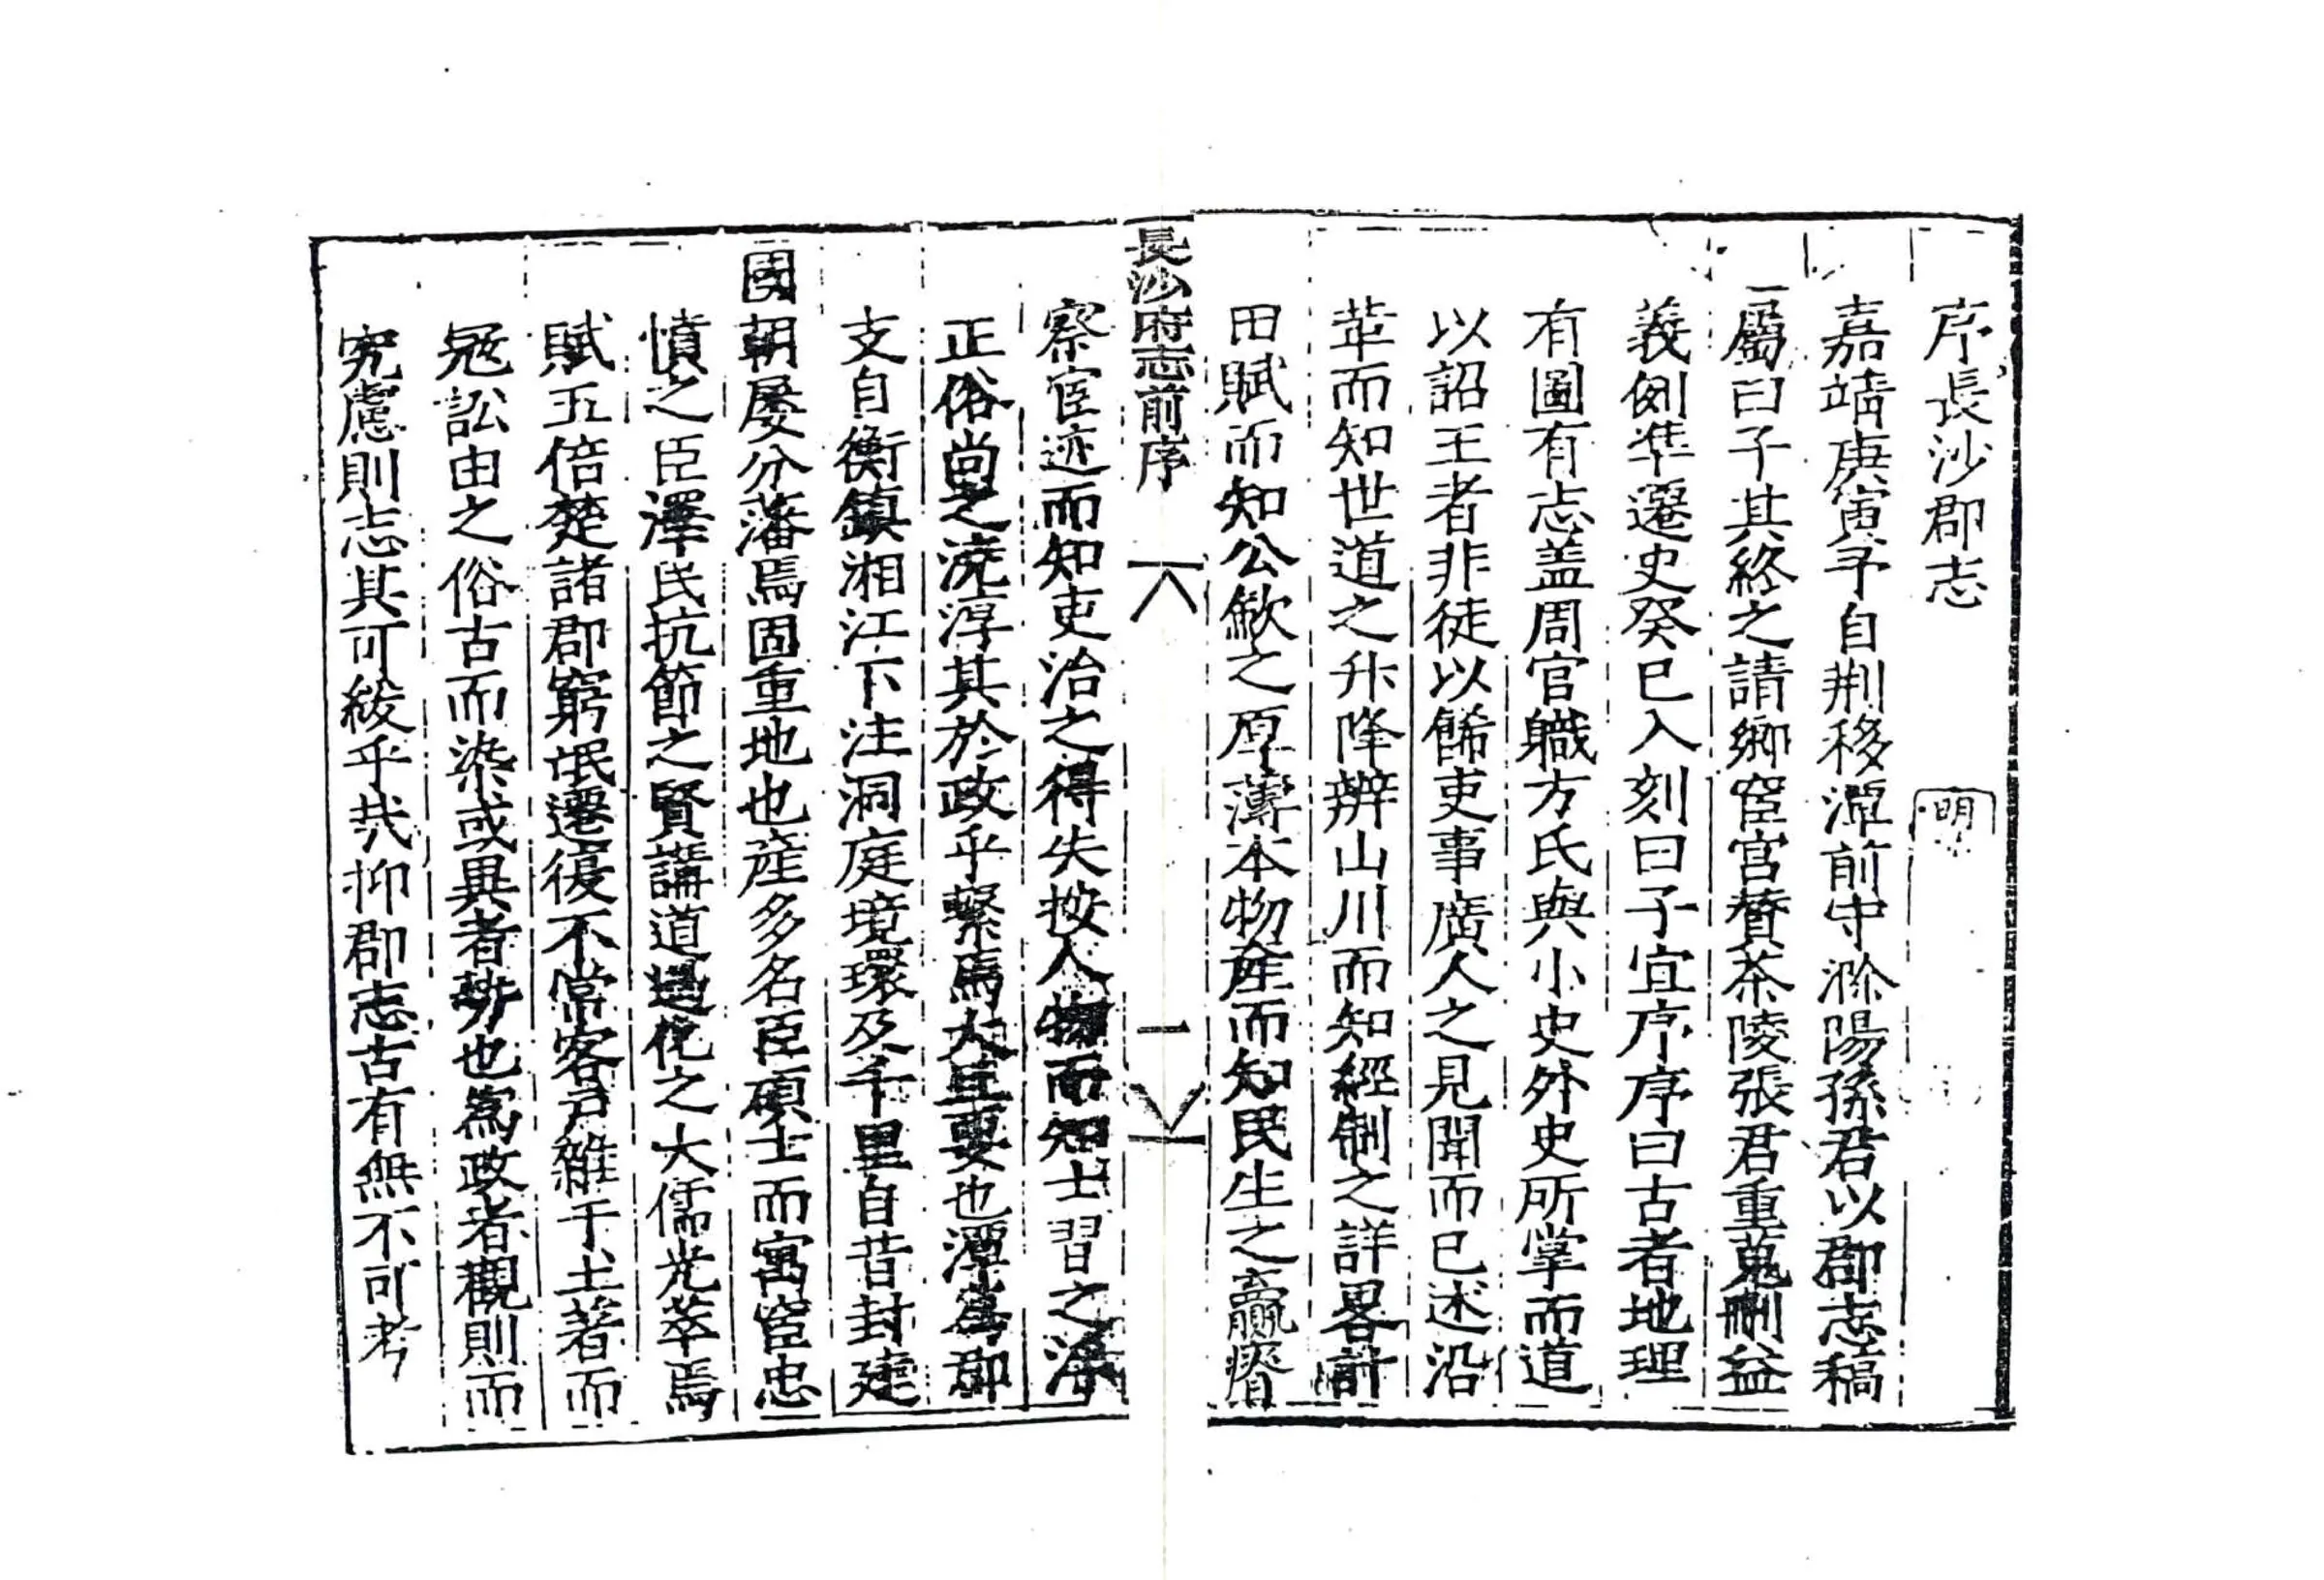 序長沙郡志
明
嘉靖庚寅予自荆移潭前守滁陽孫君以郡志稿
屬曰子其終之請鄉宦宫賛茶陵張君重蒐刪益
義例準遷史癸巳入刻曰子宜序序曰古者地理
有圖有志盖周官職方氏與小史外史所掌而道
以詔王者非徒以餙吏事廣人之見聞而已述沿
革而知世道之升降辨山川而知經制之詳畧計
田賦而知公歛之厚薄本物産而知民生之嬴瘠
長沙府志前序
一
察宦迹而知吏治之得失按人物而知士習之
正俗尚之澆淳其於政乎繫焉大且要也潭為郡
支自衡鎮湘江下注洞庭境環及千里自昔封建
國朝屡分藩焉固重地也産多名臣碩士而寓宦忠
憤之臣澤民抗節之賢講道過化之大儒光萃焉
賦五倍楚諸郡窮氓遷復不常客戸雜于土著而
冦訟由之俗古而染或異者勢也為政者觀則而
究慮則志其可緩乎㢤抑郡志古有無不可考